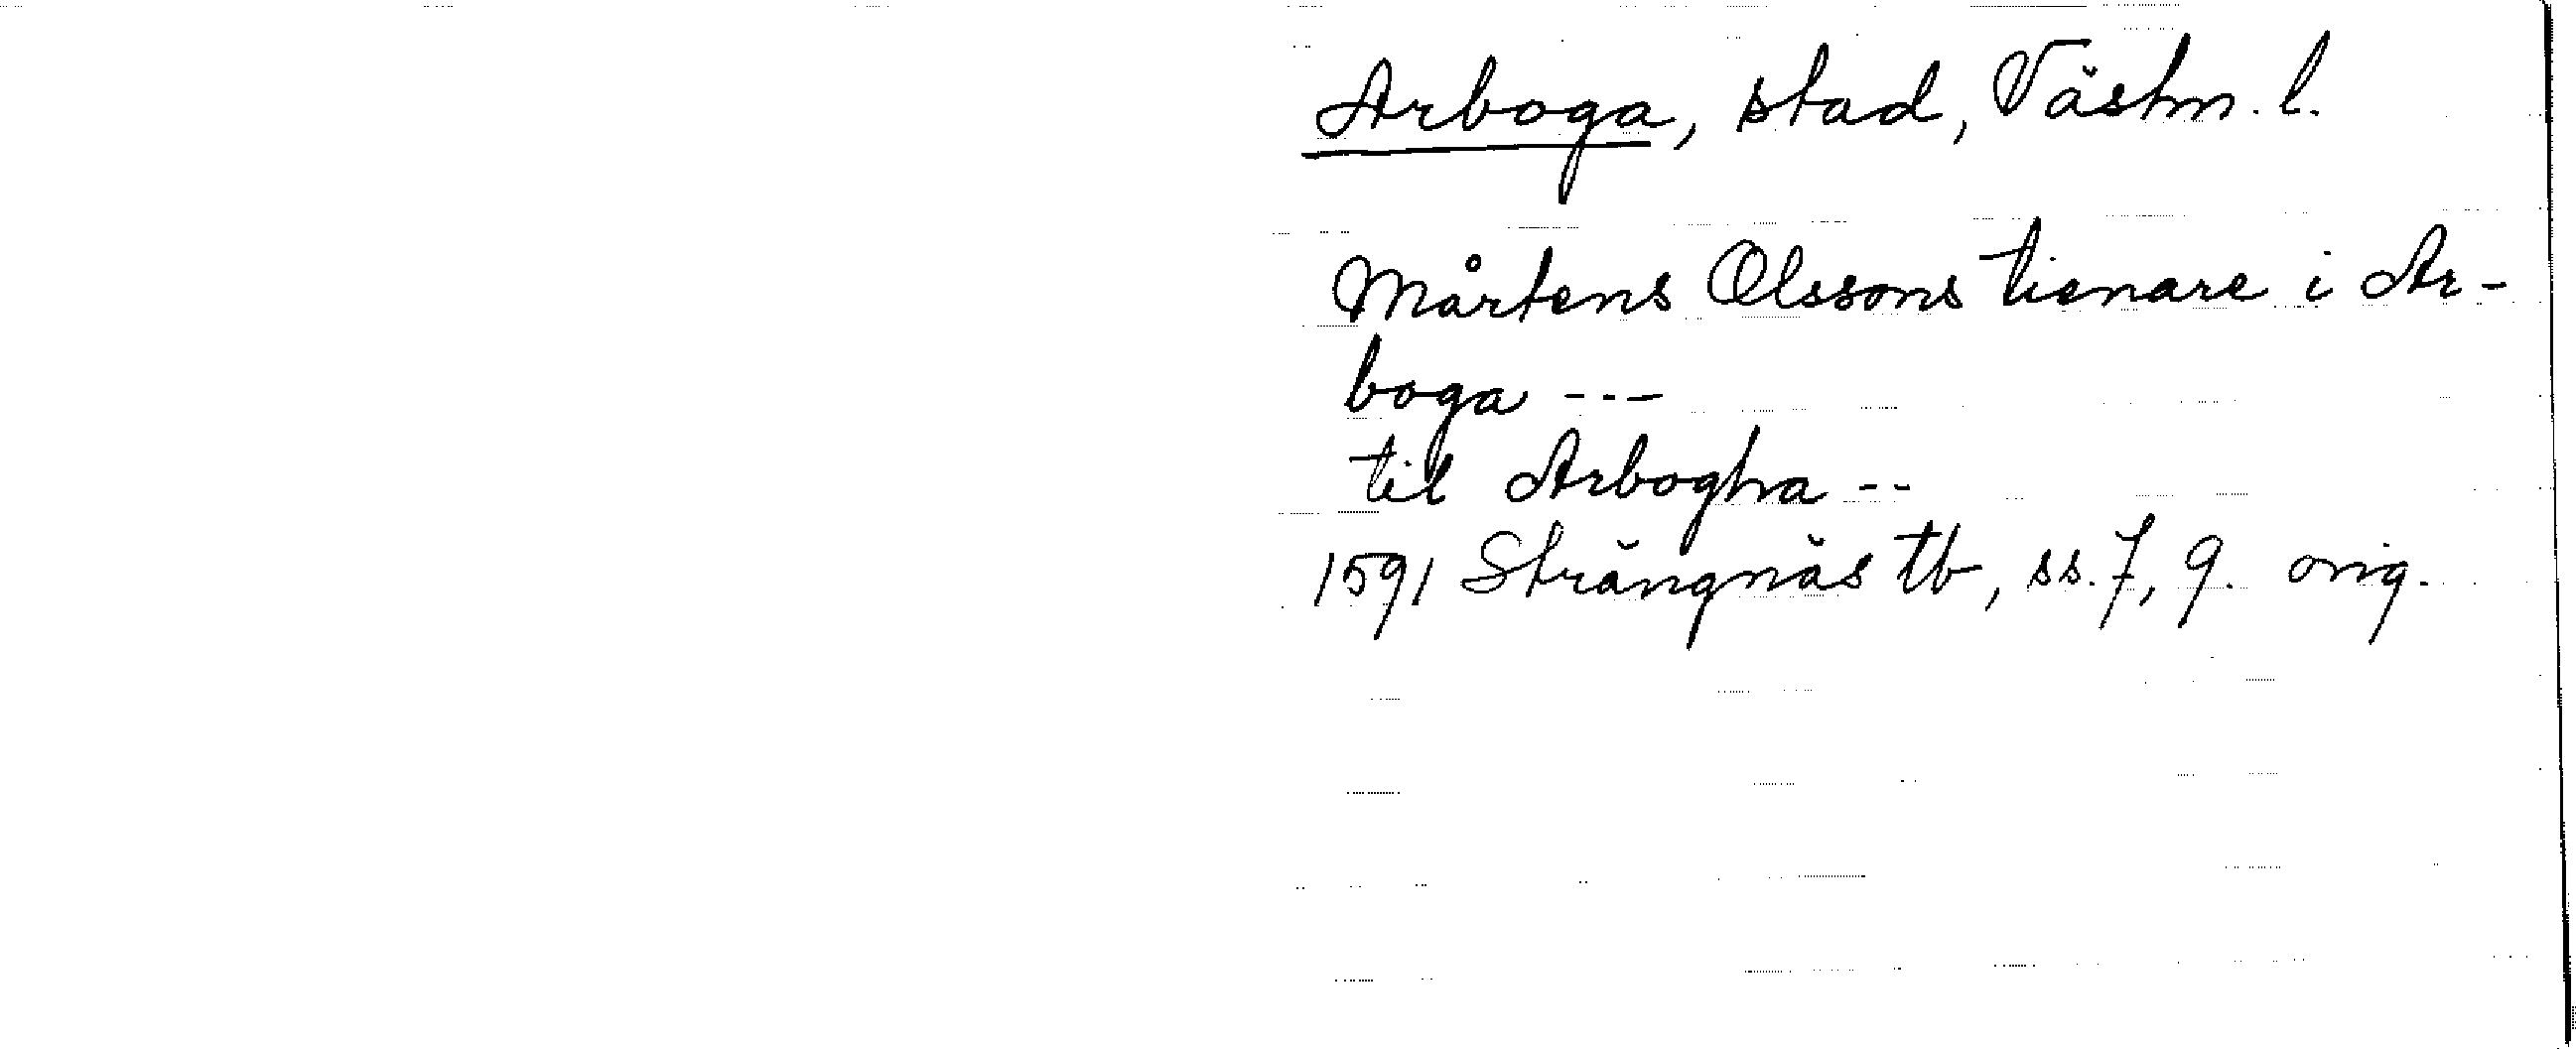 Arboga, stad, Västm. l.
Mårtens Olssons tienare i Ar-
boga ---
til Arbogha --
1591 Strängnäs tb, ss. 7, 9. orig.